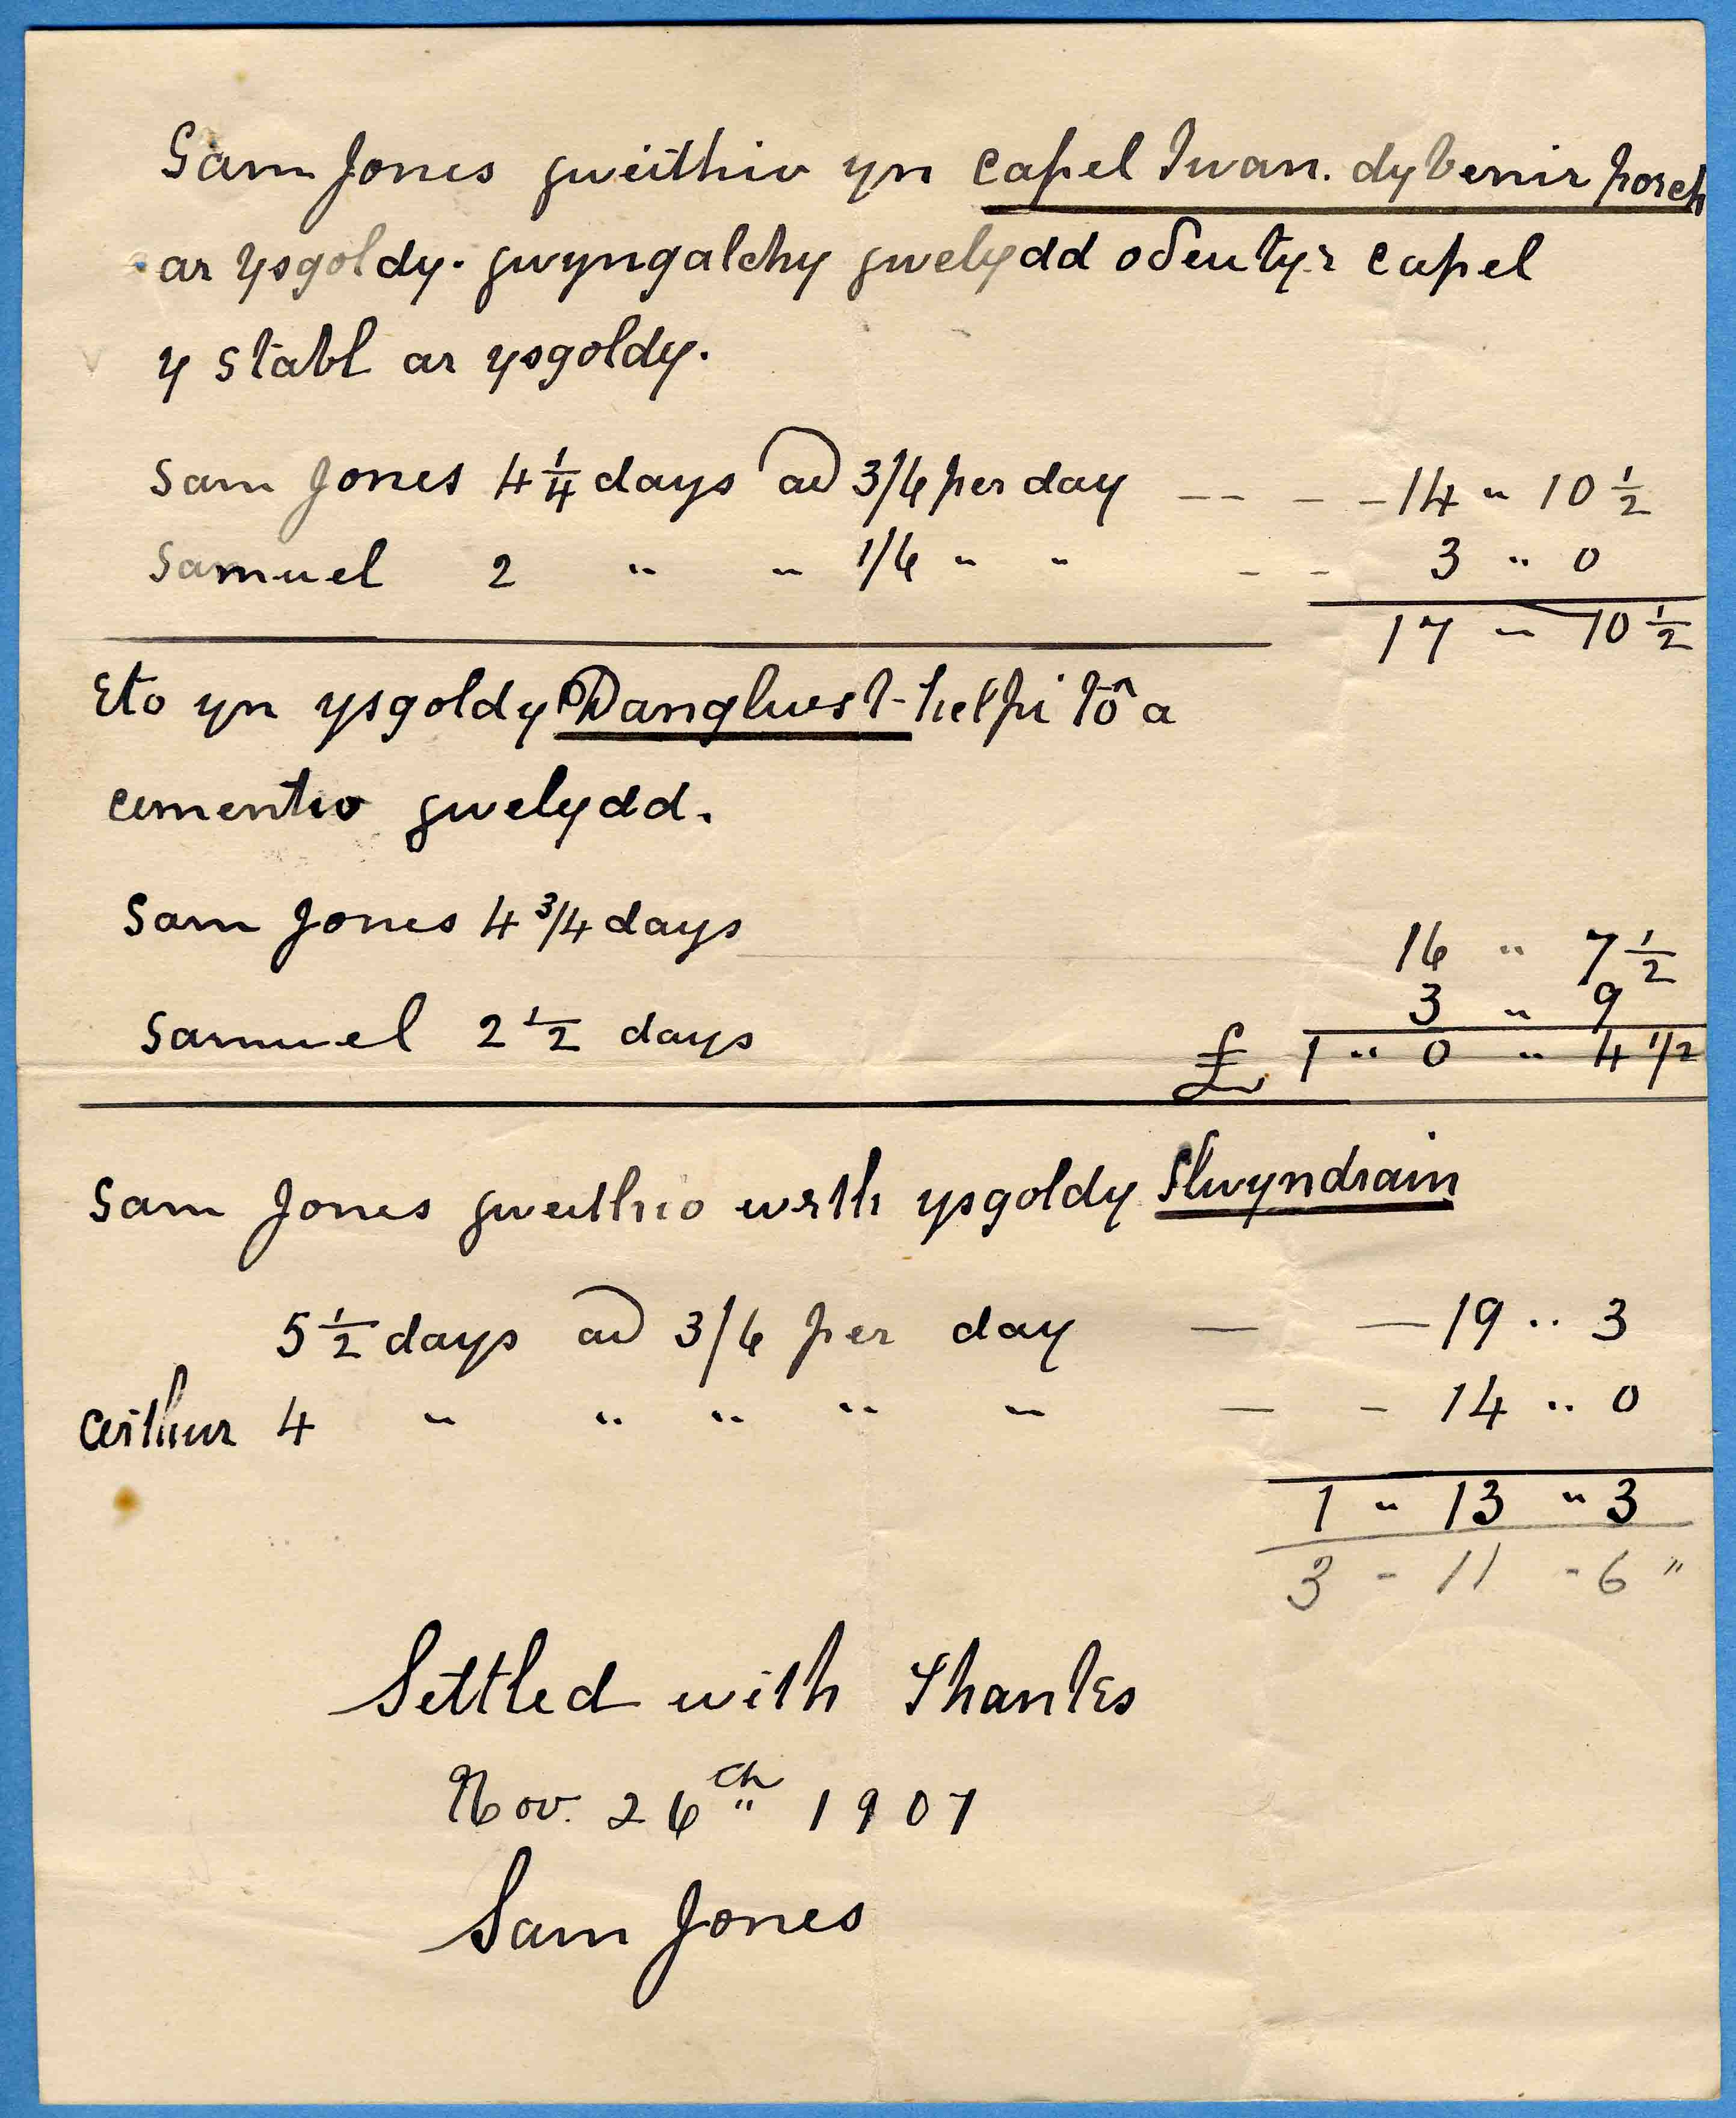 Sam Jones gweithio yn Capel Iwan. dybenir porch
ar ysgoldy. gwyngalchy gwelydd oddeuty'r capel
y stabl ar ysgoldy.
Sam Jones 4 1/4 days ad 3/6 per day -- - -14 " 10 1/2
Samuel 2 " " 1/6 " " - - 3 " 0
17 " 10 1/2
Eto yn ysgoldy Danglwest-helpi tô a
cementio gwelydd.
Sam Jones 4 3/4 days 16 " 7 1/2
Samuel 2 1/2 days 3 " 9
£ 1 " 0 " 4 1/2
Sam Jones gweithio wrth ysgoldy Llwyndrain
5 1/2 days ad 3/6 per day — — 19 " 3
Arthur 4 " " " " " — - 14 " 0
1 " 13 " 3
3 - 11 - 6 "
Settled with Thanks
Nov. 26th 1907
Sam Jones